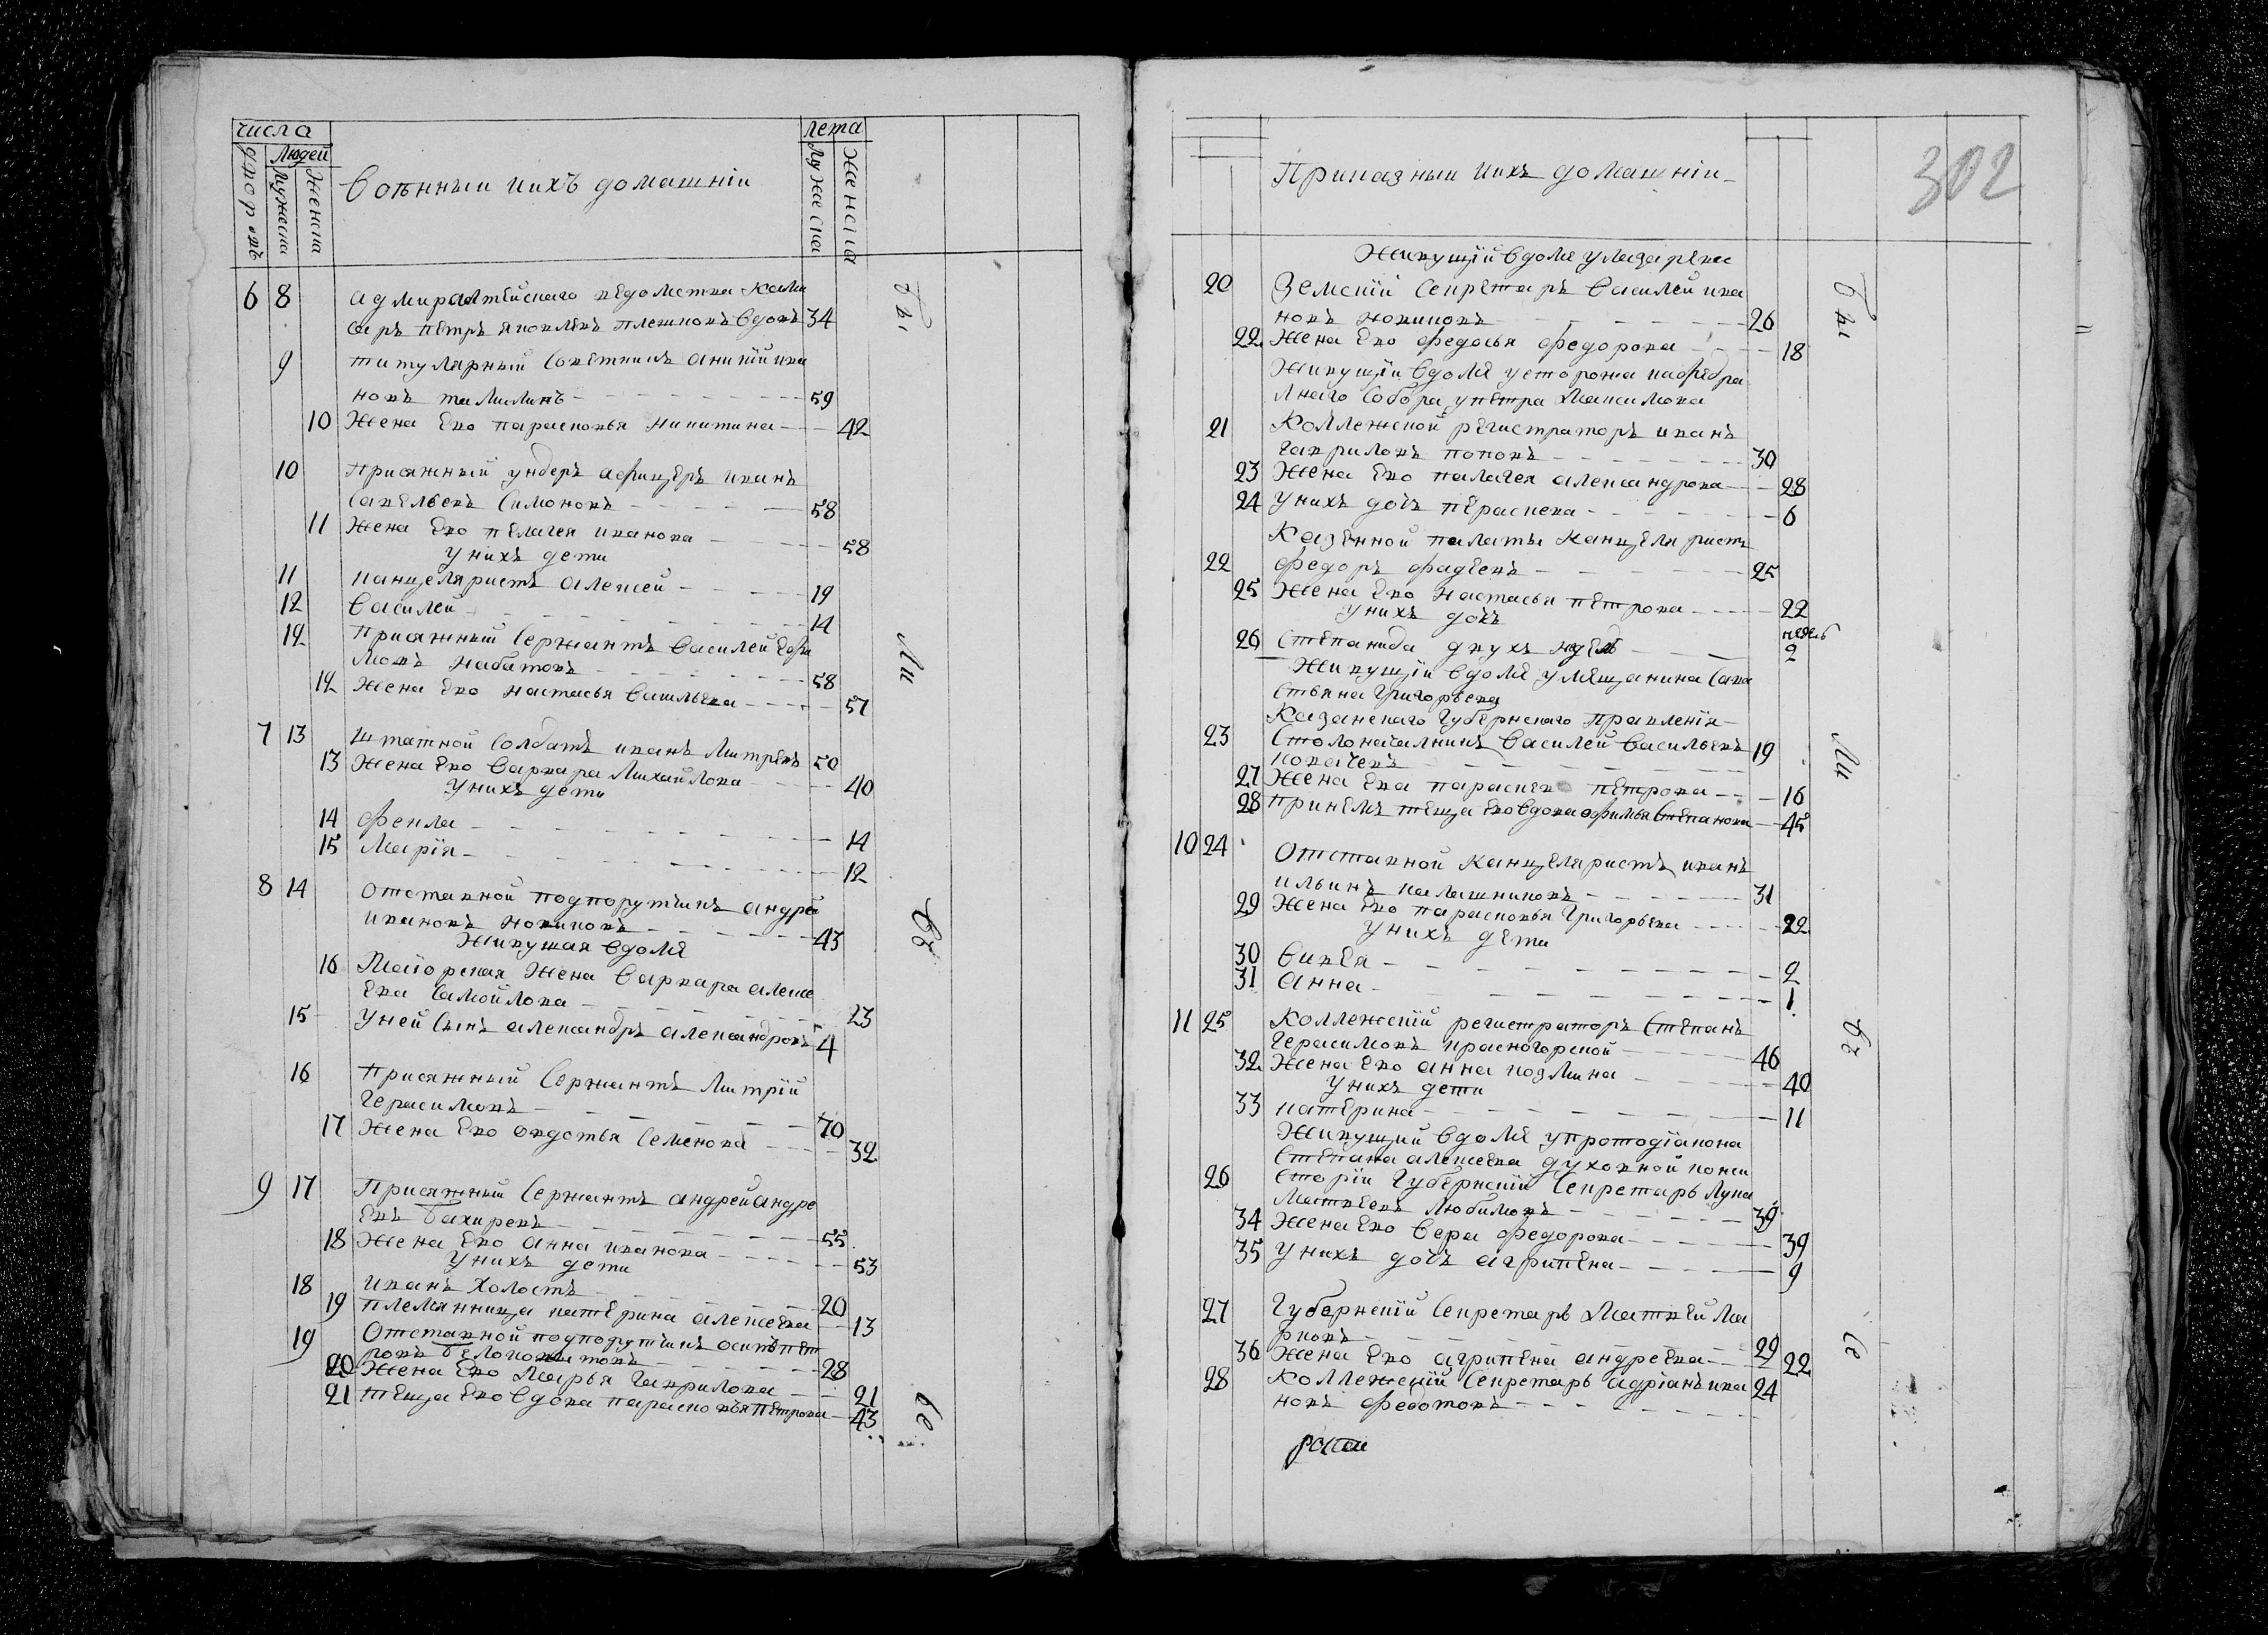 числа
лета
людей
дворовъ
мужеска
женска
Военныи ихъ домашніи
мужеска
женска
6 8 адмиралтейскаго ведомства коми
саръ петръ яковлевъ плешковъ вдовъ 34
9 титулярный Советникъ аникий ива
новъ
59
10 Жена Ево парасковья никитина 42
10 Присяжный ундеръ афицеръ иванъ
савельевъ Симоновъ 58
11 Жена Ево пелагея иванова 58
у нихъ дети
11 канцеляристъ алексей 19
12 Василей 14
12 Присяжный Сержантъ Василей Ефи
мовъ Набатовъ 58
12 Жена Ево настасья Васильева 57
7 13 Штатной Солдатъ иванъ Митревъ 50
13 Жена Ево Варвара Михайлова 40
у нихъ дети
14 Фекла 14
15 Марія 12
8 14 Отставной подпорутчикъ андрей
ивановъ новиковъ 43
Живущая вдоме
16 Маіорская Жена Варвара алексе
Ева Самойлова 23
15 у ней Сынъ александръ александровъ 4
16 Присяжный Сержантъ Митрїй
Герасимовъ 70
17 Жена Ево овдотья Семенова 32
9 17 Присяжный Сержантъ андрей андре
Евъ Бахиревъ 55
18 Жена Ево анна иванова 53
у нихъ дети
18 иванъ Холостъ 20
19 племянница катерина алексеева 13
19 Отставной подпорутчикъ осипъ пет
ровъ 28
20 Жена Ево Марья гаврилова 21
21 теща Ево вдова парасковья петрова 43
бы
ли
въ
се
Приказныи ихъ домашніи
302
Живущїй вдоме у лазарева
20 Земскїй Секретарь Василей ива
новъ новиковъ 26
22 Жена Ево федосья федорова 18
Живущїи вдоме у сторожа кафедра
лнаго Собора у петра Максимова
21 Коллежской регистраторъ иванъ
гавриловъ поповъ 30
23 Жена Ево палагея александрова 28
24 у нихъ дочь параскева 6
Казенной палаты канцеляристъ
22 федоръ фадеевъ 25
25 Жена Ево настасья петрова 22
у нихъ дочь
недель
26 степанида двухъ недель 2
Живущїй вдоме у мещанина Сава
стьяна григорьева
Казанскаго Губернскаго Правленїя
23 Столоначалникъ Василей Васильевъ 19
27 Жена Ева параскева петрова 16
28 принемъ теща Ево вдова офимья Степанова 45
10 24 Отставной канцеляристъ иванъ
ильинъ калашниковъ 31
29 Жена Ево парасковья григорьева 22
у нихъ дети
30 2
31 анна 1
11 25 Коллежскїй регистраторъ Степанъ
герасимовъ красногорской 46
32 Жена Ево анна козмина 40
у нихъ дети
33 катерина 11
Живущий вдоме у протодїакона
Степана алексеева духовной конси
26 сторїи губернскїй Секретарь лука
Матвеевъ Любимовъ 39
34 Жена Ево Вера федорова 39
35 у нихъ дочь агрипена 9
27 Губернскїй Секретарь Матвей Ма
рковъ 29
36 Жена Ево агрипена андреева 22
28 Коллежскїй Секретарь адрїанъ ива 24
новъ федотовъ
бы
ли
въ
се